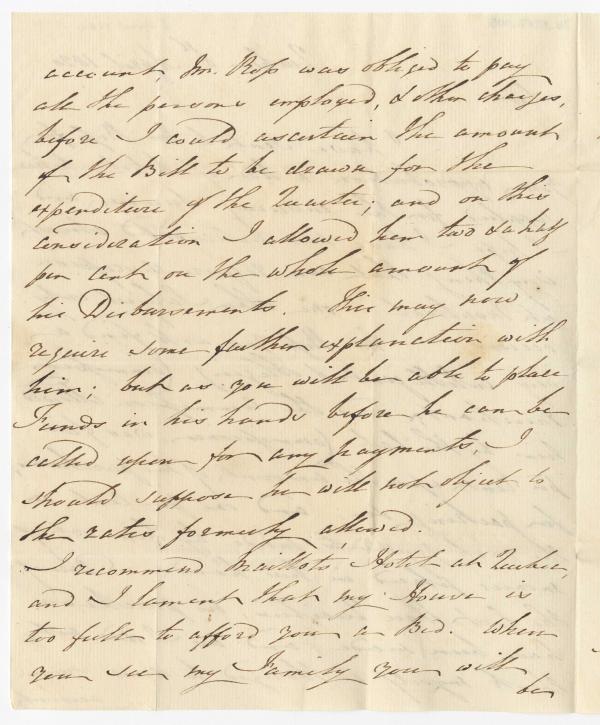 account, Mr. Ross was obliged to pay
all the persons employed, & other charges,
before I could ascertain the amount
of the Bill to be drawn for the
expenditure of the Quarter; and on this
consideration I allowed him two & a half
per cent on the whole amount of
his Disbursements. This may now
require some farther explanation with
him; but as you will be able to place
Funds in his hands before he can be
called upon for any payments, I
should suppose he will not object to
the rates formerly allowed.
I recommend Maillots' Hotel at Quebec,
and I lament that my House is
too full to afford you a Bed. When
you see my Family you will
be